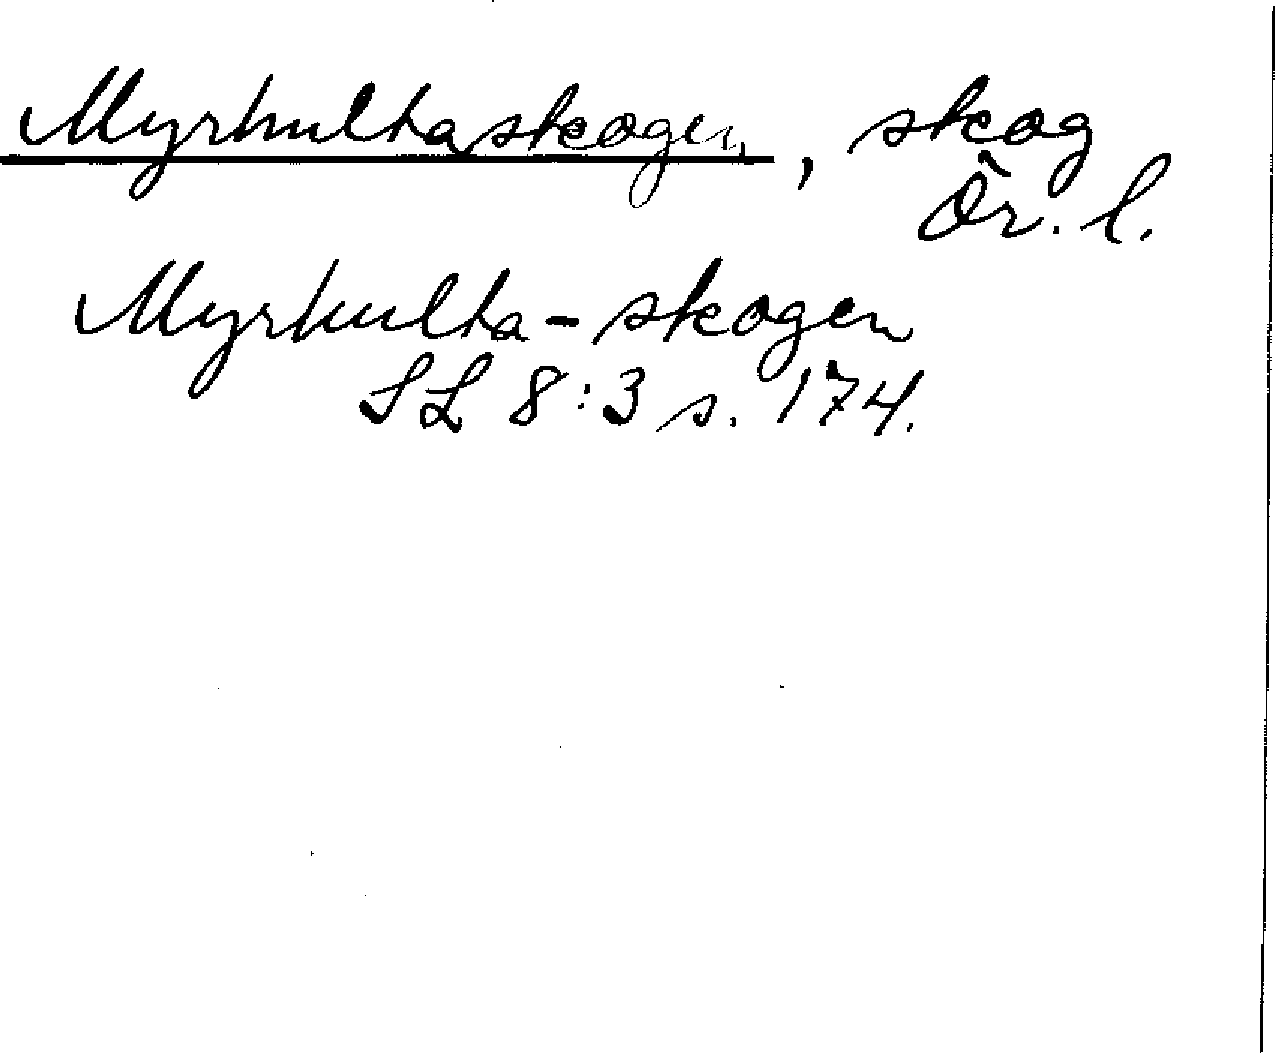 Myrhultaskogen, skog
Ör. l.
Myrhulta-skogen
SL 8:3 s. 174.